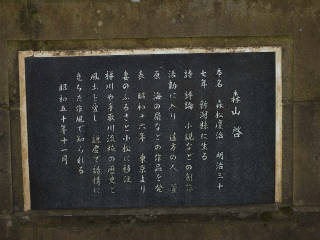 森山 啓
本名 森松慶治 明治三十
七年 新潟縣に生る
詩 評論 小説などの創作
活動に入り 遠方の人
海の扇などの作品を発
表 昭和十六年 東京より
妻のふるさと小松に移住
梯川や手取川流域の歴史と
風土を愛し 誠実で詩情に
みちた作風で知られる
昭和五十年十一月